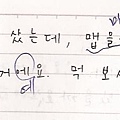 샀는데, 맵을
거에요. 먹 보
예